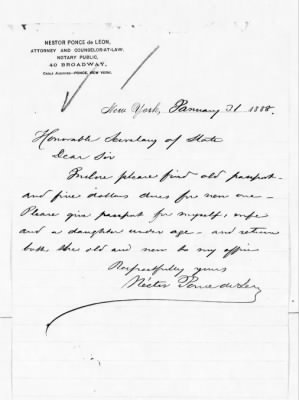 NESTOR PONCE de LEON,
ATTORNEY AND COUNSELOR-AT-LAW.
NOTARY PUBLIC,
40 BROADWAY,
CABLE ADDRESS—PONCE, NEW YORK.
New York, January 31 1888.
Honorable Secretary of State
Dear Sir
Inclose please find old passport
and five dollars dues for new one—
Please give passport for myself, wife
and a daughter under age—and return
both the old and new to my office
Respectfully yours
Néstor Ponce de León